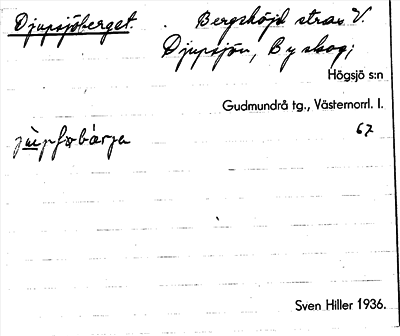 Djupsjöberget. Bergshöjd strax V.
Djupsjön, By skog;
Högsjö s:n
Gudmundrå tg., Västernorrl. l.
67
Sven Hiller 1936.